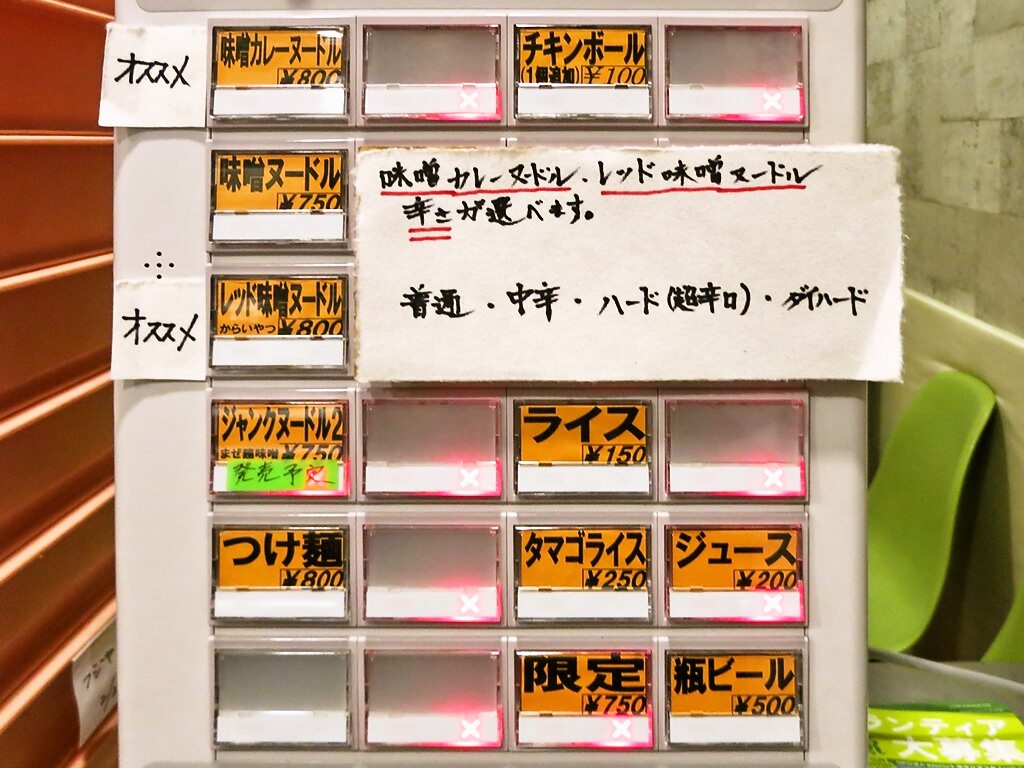 オススメ
味噌カレーヌードル
¥800
チキンボール
(1個追加) ¥100
味噌ヌードル
¥750
味噌カレーヌードル・レッド味噌ヌードル
辛さが選べます。
普通・中辛・ハード(超辛口)・ダイハード
オススメ
レッド味噌ヌードル
からいやつ ¥800
ジャンクヌードル2
まぜ麺味噌 ¥750
発売予定
ライス
¥150
つけ麺
¥800
タマゴライス
¥250
ジュース
¥200
限定
¥750
瓶ビール
¥500
ランティア
大募集